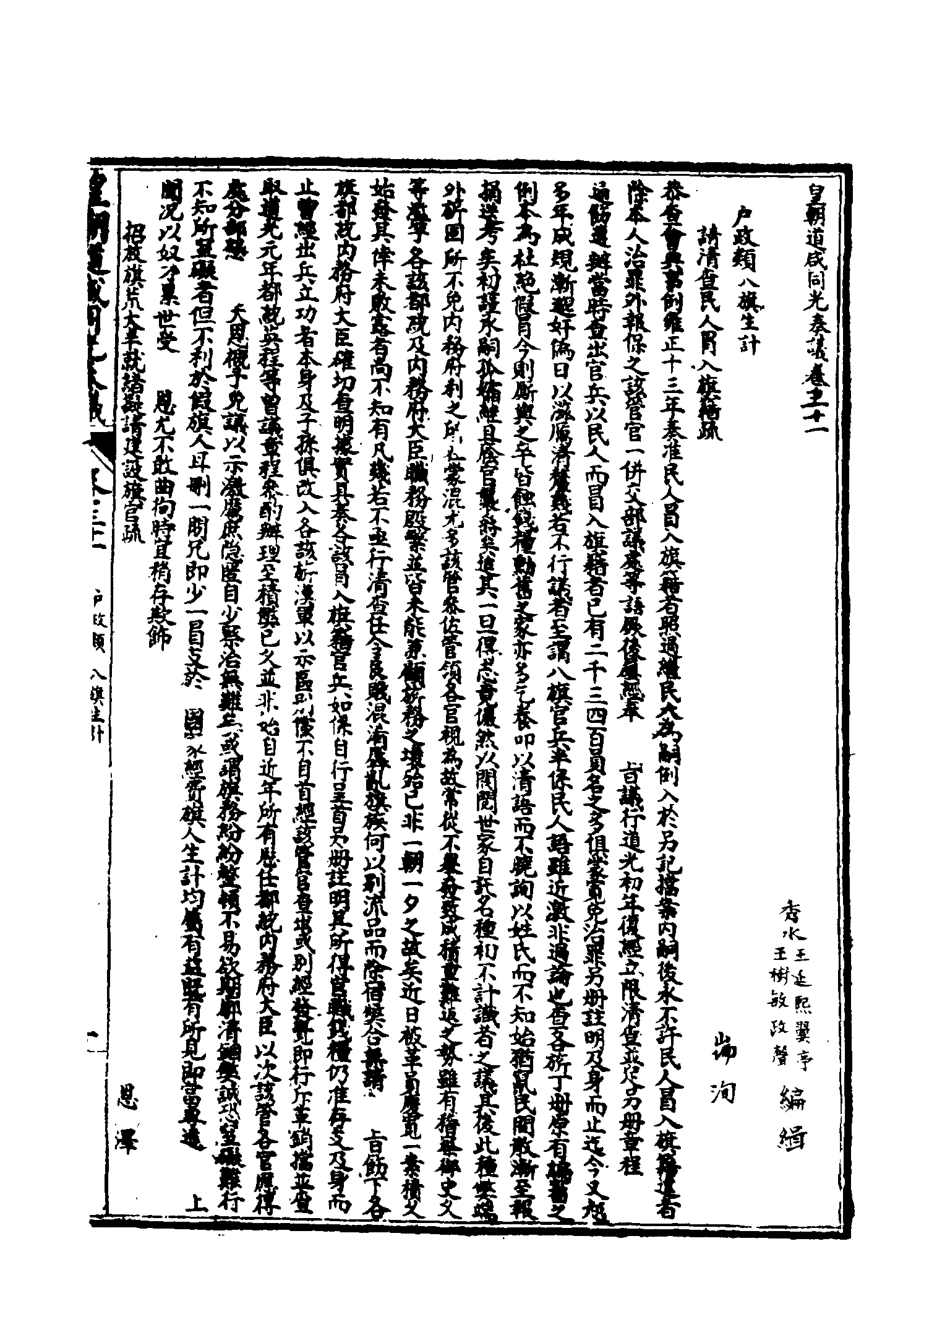 皇朝道咸同光奏議卷三十一
香水王延熙翼亭
王樹敏政聲
編緝
戶政類八旗生計
請清查民人冒入旗籍疏
端洵
恭查會典事例雍正十三年奏准民人冒入旗籍者照過繼民人為嗣例入於另記檔案內嗣後永不許民人冒入旗籍違者
除本人治罪外報保之該管官一併交部議處等語厥後屢經奉 旨議行道光初年復經立限清查並定另冊章程
遍飭遵辦當時查出官兵以民人而冒入旗籍者已有二千三四百員名之多俱蒙寬免治罪另冊註明及身而止迄今又
多年成規漸遐奸偽日以滋厲清釐幾若不行議者至謂八旗官兵半係民人語雖近激非過論也查各旗丁冊原有編審之
例本為杜絕假冒今則廝輿之卒皆蝕錢糧勳舊之家亦多乞養叩以清語而不曉詢以姓氏而不知始猶鼠民間散漸至報
捐選考矣初謹承嗣孤孀繼且廕官襲爵矣追其一旦得志貴儼然以閥閱世家自託名種初不計識者之議其後此種弊端
外旂固所不免內務府利之所在蒙混尤多該管參佐管領各官視為故常從不舉發致成積重難返之勢雖有稽察御史
等處
各該都統及內務府大臣職務殷繁並皆未能兼顧旂務之壞殆已非一朝一夕之故矣近日被革員慶寬一案積久
始發其倖未敗露者尚不知有凡幾若不亟行清查任令良賤混淆羼亂旗族何以別流品而除宿弊合無請 旨飭下各
旗都統內務府大臣確切查明據實具奏各該冒入旗籍官兵如係自行呈首另冊註明其所得官職錢糧仍准存支及身而
止曾經出兵立功者本身及子孫俱改入各該旂漢軍以示區別儻不自首經該管官查出或別經發覺即行斥革銷檔並查
取道光元年都統英程等曾議章程參酌辦理至積弊已久並非始自近年所有歷任都統內務府大臣以次該管各官應得
處分都懇 天恩概予免議以示激厲庶隱匿自少懲治無難或謂旗務紛紛整頓不易欲期廓清錮弊誠恐窒礙難行
不知所窒礙者但不利於假旗人耳刪一閒冗即少一冒支於 國家經費旗人生計均屬有益既有所見即當專達 上
聞況以奴才累世受 恩尤不敢曲徇時宜稍存欺飾
招墾旗荒大率就緒擬請建設旗官疏
恩澤
皇朝道咸同光奏議
卷三十一 戶政類 八旗生計
一